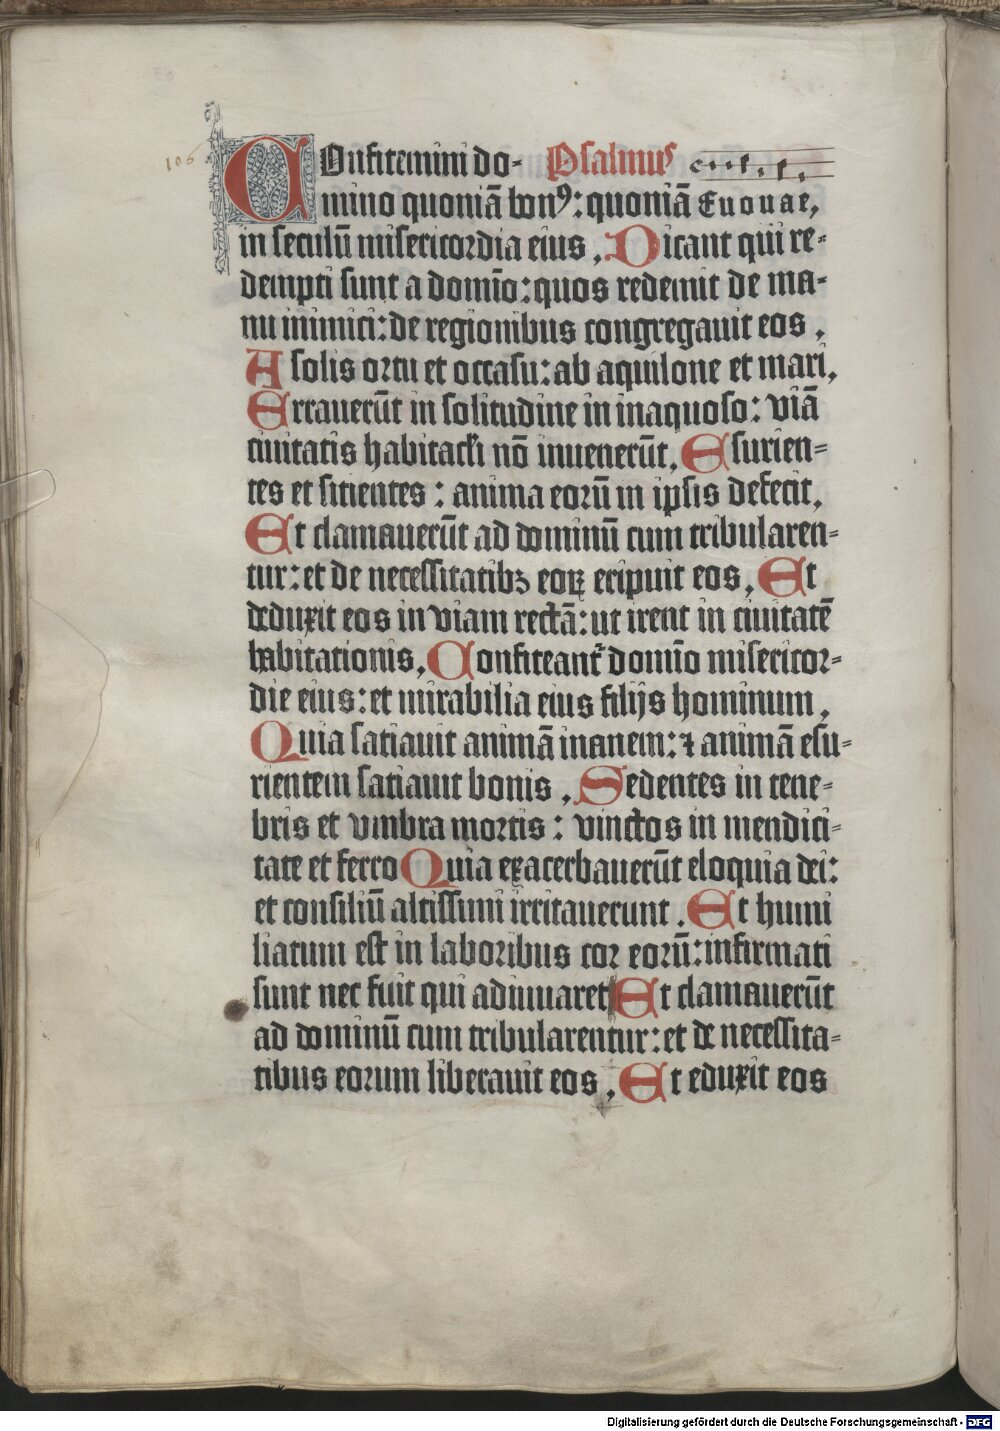 106
COnfitemini do- Psalmus
mino quoniā bonꝰ: quoniā Euouae,
in seculū misericordia eius, Dicant qui re-
dempti sunt a domīo: quos redemit de ma-
nu inimici: de regionibus congregauit eos,
A solis ortu et occasu: ab aquilone et mari,
Errauerūt in solitudine in inaquoso: viā
ciuitatis habitacli nō inuenerūt, Esurien-
tes et sitientes: anima eorū in ipsis defecit,
Et clamauerūt ad dominū cum tribularen-
tur: et de necessitatibꝫ eoꝝ eripuit eos, Et
deduxit eos in viam rectā: ut irent in ciuitatē
habitationis, Confiteant᷑ domīo misericor-
die eius: et mirabilia eius filijs hominum,
Quia satiauit animā inanem: ⁊ animā esu-
rientem satiauit bonis, Sedentes in tene-
bris et vmbra mortis: vinctos in mendici-
tate et ferro Quia exacerbauerūt eloquia dei:
et consiliū altissimi irritauerunt. Et humi
liatum est in laboribus cor eorū: infirmati
sunt nec fuit qui adiuuaret Et clamauerūt
ad dominū cum tribularentur: et de necessita-
tibus eorum liberauit eos, Et eduxit eos
Digitalisierung gefördert durch die Deutsche Forschungsgemeinschaft - DFG